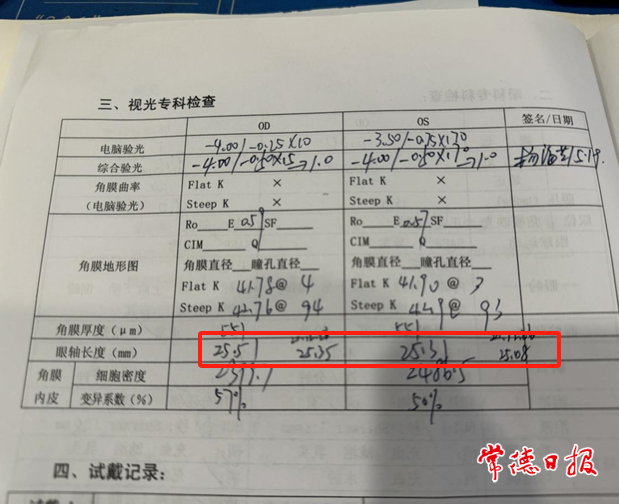 三、视光专科检查
OD OS 签名/日期
电脑验光 -4.00/-0.25×10 -3.50/-0.75×170
综合验光 -4.00/-0.50×15→1.0 -4.00/-0.50×170→1.0 5.19.
角膜曲率 Flat K × Flat K ×
(电脑验光) Steep K × Steep K ×
Ro___E 0.5 SF___ Ro___E 0.5 SF___
CIM___ Q___ CIM___ Q___
角膜地形图 角膜直径___瞳孔直径___ 角膜直径___瞳孔直径___
Flat K 41.78@ 4 Flat K 41.90@ 3
Steep K 42.76@ 94 Steep K @ 93
角膜厚度(μm) 551 551
眼轴长度(mm) 25.51 25.35 25.31 25.08
角膜 细胞密度 2486.5
内皮 变异系数(%) 57% 50%
四、试戴记录:
常德日报